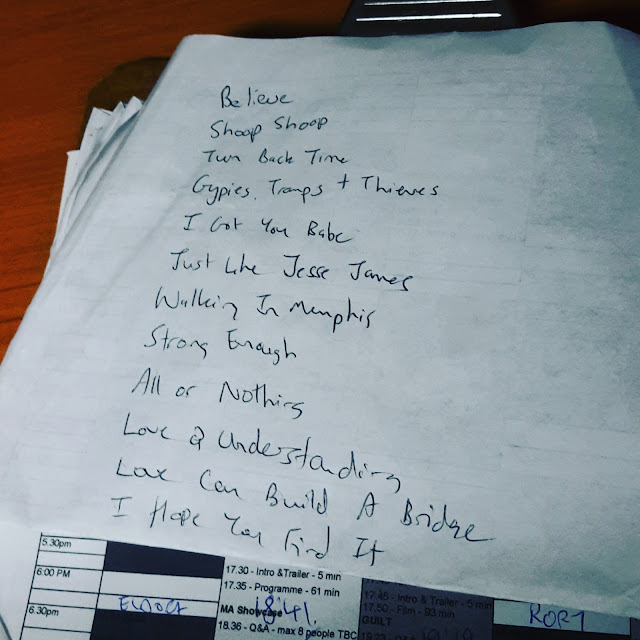 Believe
Shoop Shoop
Turn Back Time
Gypies, Tramps + Thieves
I Got You Babe
Just Like Jesse James
Walking In Memphis
Strong Enough
All or Nothing
Love & Understanding
Love Can Build A Bridge
I Hope You Find It
5.30pm
6:00 PM
6.30pm
17.30 - Intro &Trailer - 5 min
17.35 - Programme - 61 min
MA Showcase
841.
18.36 - Q&A - max 8 people TBC
17.45 - Intro & Trailer - 5 min
17.50 - Film - 93 min
GUILT
RORY